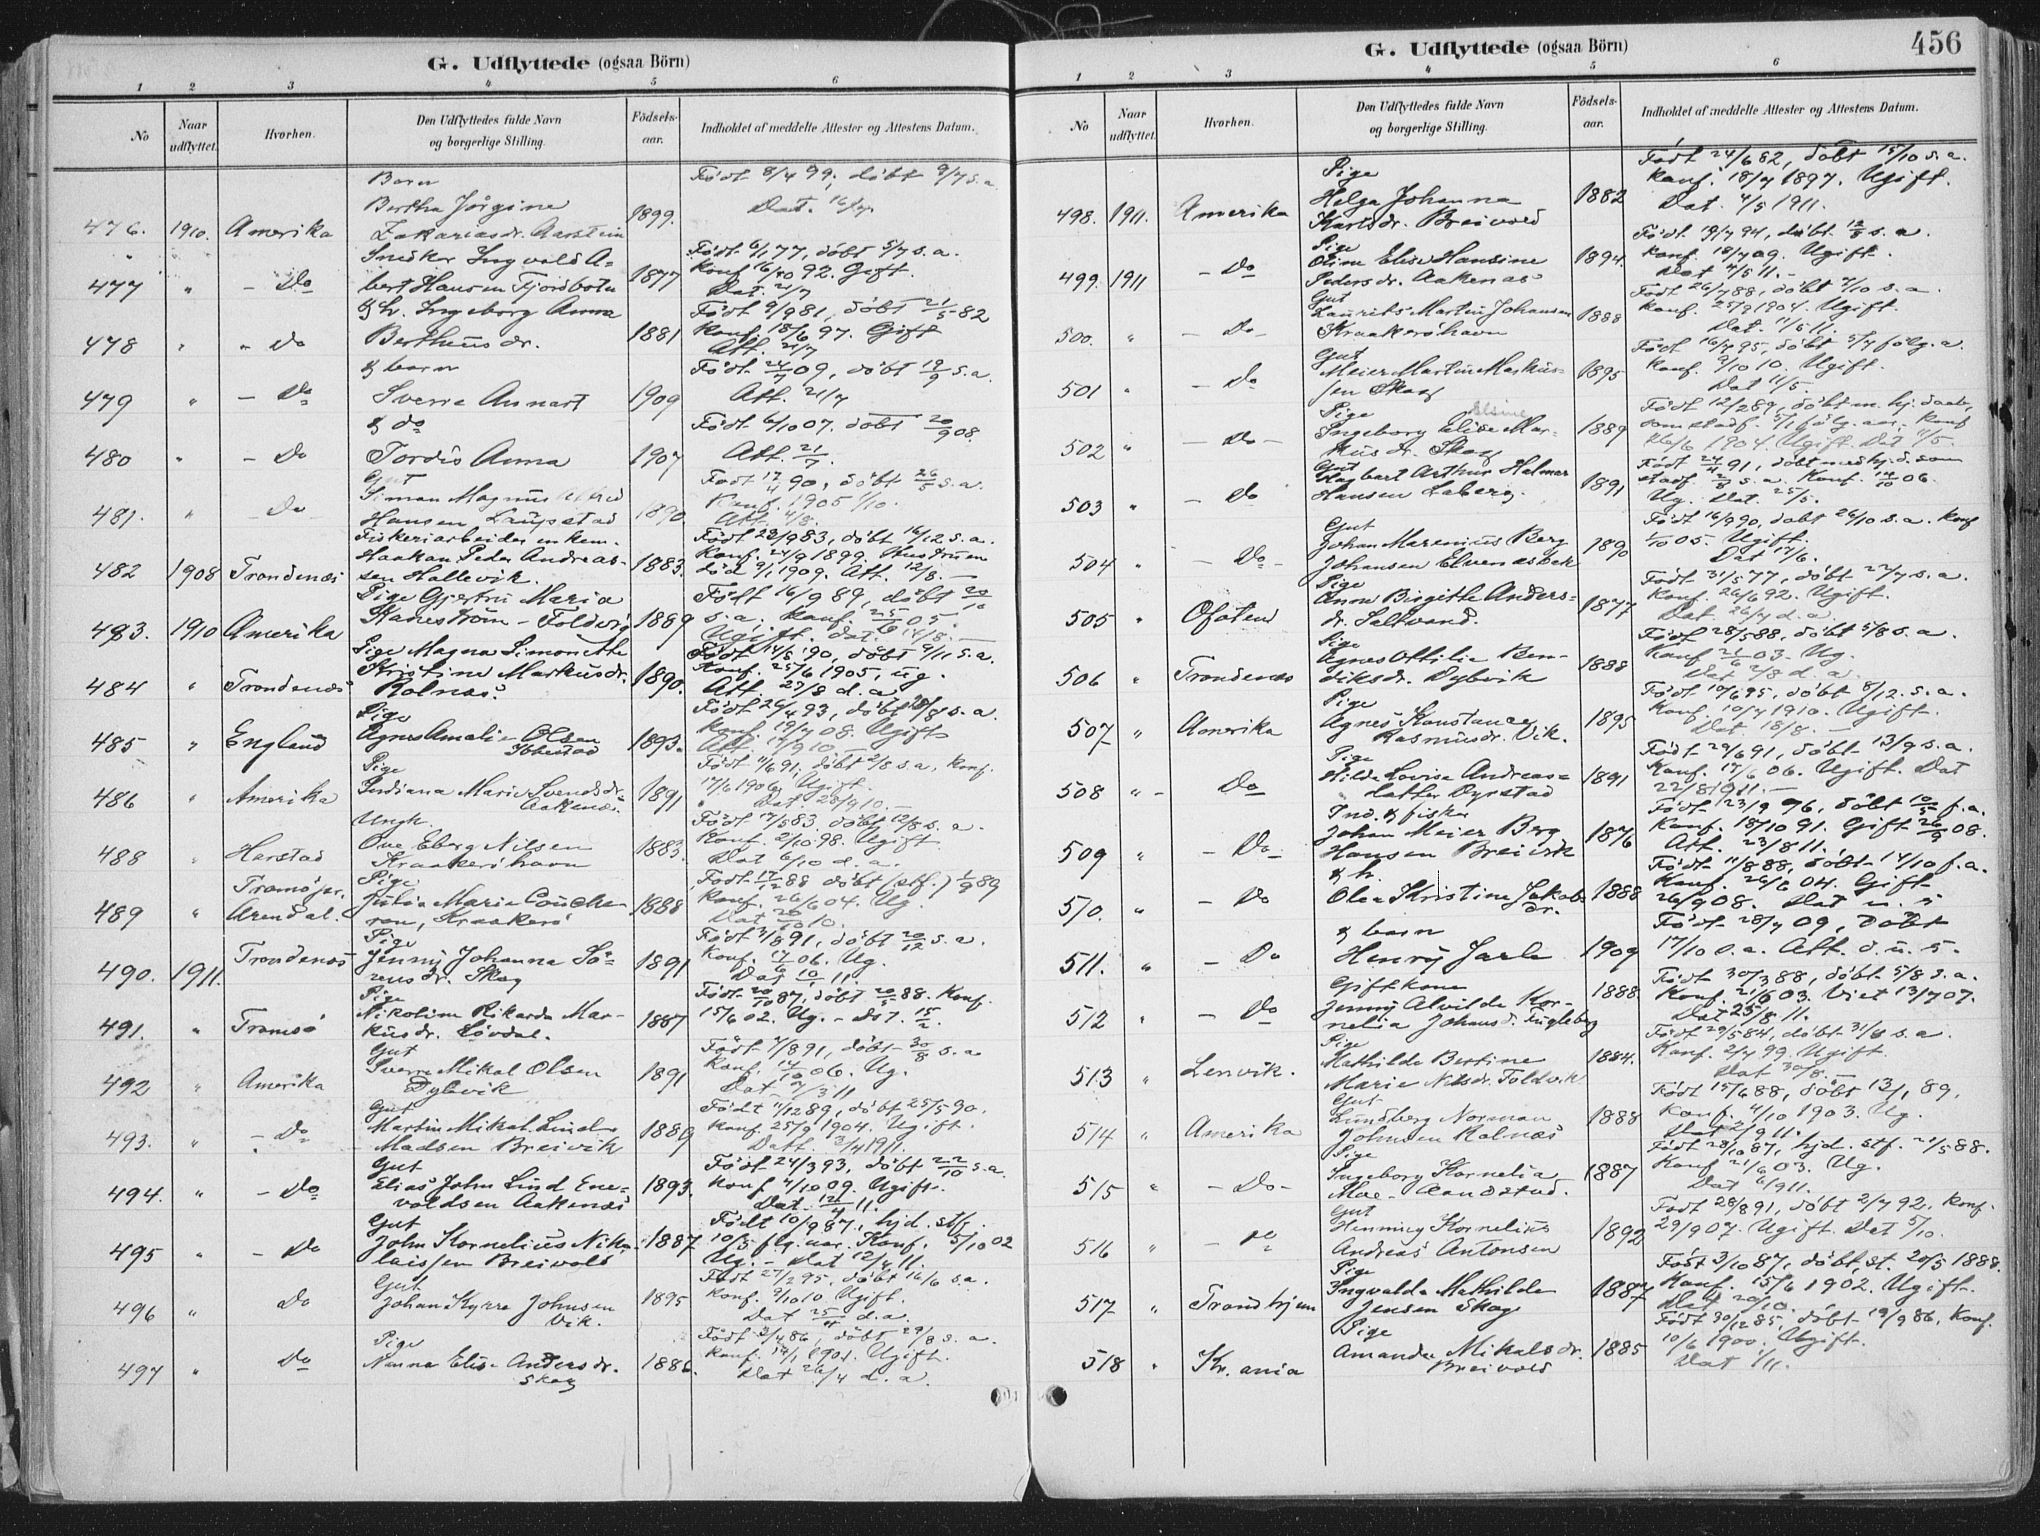 G. Udflyttede (ogsaa Börn)
1 2 3 4 5 6
No
Naar udflyttet.
Hvorhen.
Den Udflyttedes fulde Navn og borgerlige Stilling.
Födsels-aar.
Indholdet af meddelte Attester og Attestens Datum.
Barn Födt 8/4 99, döbt 9/7 s.a.
Bertha Jörgine Dat. 16/4
476. 1910. Amerika Zakariasdr. Aarstein 1899.
Snedker Ingvald A- Födt 6/1 77, döbt 5/7 s.a.
477 " - Do bert Hansen Fjordbotn 1877 Konf. 16/10 92. Gift. Dat. 21/7
& h. Ingeborg Anna Födt 9/9 81, döbt 21/5 82
478 " " Do Bertheusdr. 1881 Konf. 18/6 97. Gift Att. 21/7
& barn Födt 24/7 09, döbt 12/9 s.a.
479 " - Do Sverre Annart 1909 Att. 21/7
& do Födt 6/10 07. döbt 20/9 08.
480 " - Do Tordis Anna 1907 Att. 21/7.
Gut Födt 17/4 90, döbt 26/5 s.a.
Simon Magnus Alfred Konf. 1905 1/10.
481. " Do Hansen Laupstad 1890. Att. 4/8.
Fiskeriarbeider enkem. Födt 22/9 83, döbt 16/12 s.a.
Haakon Peder Andreas- Konf. 24/9 1899. Hustruen
482 1908 Trondenæs sen Hallevik. 1883. död 9/1 1909. Att. 12/8. -
Pige Gjertru Maria Födt 16/9 89, döbt 20/10
483. 1910 Amerika Hanestrøm - Foldvig 1889 s.a, Konf. 25/6 05. Ugift. Dat. 14/8. -
Pige Magna Simonette Födt 14/8 90, döbt 9/11 s.a.
Kristine Markusdr. Konf. 25/6 1905, ug.
484 " Trondenæs Rolnæs. 1890. Att. 27/8 d.a
Pige Födt 26/4 93, döbt 20/8 s.a.
485 " England Agnes Amalie Olsen 1893. Konf. 19/7 08. Ugift
Ibbestad Att. 17/9 10.
Pige Födt 11/6 91, döbt 2/8 s.a, Konf.
486 " Amerika Indiana Marie Svendsdr. 1891 17/6 1906 Ugift.
Aakenes. Dat 28/9 10. -
Ungk. Födt 17/5 83 döbt 12/8 s.a.
Ove Eberg Nilsen Konf. 2/10 98. Ugift
488 " Harstad Kraakeröhavn 1883. Dat 6/10 d.a.
Tromöpr. Pige Födt 17/12 88 döbt (stf.) 1/9 89
489 " Arendal. Julie Marie Couche- 1888 Konf. 26/6 04. Ug.
ron, Kraakerö Dat 20/10 10.
Pige Födt 3/8 91, döbt 20/12 s.a.
Trondenæs Jenny Johanna Sö- Konf. 17/6 06. Ug.
490. 1911. rensdr. Skog 1891 Dat 10/1 11.
Pige Födt 20/10 87, döbt 20/5 88. Konf.
Nikoline Rikarda Mar- 15/6 02. Ug. - Dat. 15/2.
491. " Tromsö kusdr. Lövdal. 1887
Gut Födt 4/8 91, döbt 30/8 s.a
Sverre Mikal Olsen Konf. 14/10 06. Ug.
492 " Amerika Dybvik 1891 Dat 7/3 11
Gut Födt 11/12 89, döbt 25/5 90.
Martin Mikal Lind Konf. 25/9 1904. Ugift.
493. " - Do Madsen Breivik 1889 Datt. 3/4 1911.
Gut Födt 24/3 93, döbt 22/10 s.a.
Elias John Lind Ene- Konf 4/10 09. Ugift.
494. " - Do voldsen Aakenes 1893. Dat. 12/4 11.
Gut Födt 10/9 87, hjd. stf.
John Kornelius Niko- 10/5 flg. aar. Konf. 5/10 02
495 " - Do laissen Breivold 1887 Ug. - Dat 12/4 11.
Gut Födt 27/2 95, döbt 16/6 s.a.
Johan Kyrre Johnsen Konf. 9/10 10 Ugift.
496 " Do Vik. 1895 Dat 25/4 d.a.
Pige Födt 3/4 86, döbt 29/8 s.a.
Nanna Elise Andersdr. Konf. 1901. Ugift.
497 " Do Skog 1886. Dat 26/4 d.a.
G. Udflyttede (ogsaa Börn)
456
1 2 3 4 5 6
No
Naar udflyttet.
Hvorhen.
Den Udflyttedes fulde Navn og borgerlige Stilling.
Födsels-aar.
Indholdet af meddelte Attester og Attestens Datum.
Pige Födt 24/6 82, döbt 15/10 s.a.
Helga Johanna Konf. 18/7 1897. Ugift.
498. 1911. Amerika Karlsdr. Breivold 1882 Dat. 4/5 1911.
Pige Födt 19/7 94, döbt 12/8 s.a.
Oline Elise Hansine Konf. 18/7 09. Ugift.
499. 1911 - Do Pedersdr. Aakenes 1894. Dat 4/5 11. -
Gut Födt 26/7 88, döbt 7/10 s.a.
Laurits Martin Johansen Konf. 25/9 1904. Ugift.
500. " - Do - Kraakeröhavn 1888 Dat. 11/5 11.
Gut Födt 16/4 95, döbt 5/4 fölg. a.
Meier Martin Markus- Konf. 9/10 10. Ugift.
501 " - Do sen Skog 1895 Dat 11/5.
Pige Elsine Födt 12/2 89, döbt m. hj. daab,
Ingeborg Elise Mar- som stadf. 5/1 fölg. aar, Konf
502 " - Do - kusdr. Skog 1889 26/6 1904. Ugift Dat 11/5.
Gut Födt 24/4 91, döbt med hj. d. som
Hagbart Arthur Halmar stadf. 2/8 s.a. Konf. 14/10 06.
503 " - Do Hansen Laberg. 1891 Ug. Dat. 25/5.
Gut Födt 16/9 90, döbt 26/10 s.a. Konf
Johan Marenius Berg 1/10 05. Ugift.
504 " - Do - Johansen Elvenesbak 1890 Dat 17/6.
Pige Födt 31/5 77, döbt 22/7 s.a.
Anna Birgitte Anders- Konf. 26/6 92. Ugift.
505 " Ofoten dr. Saltvand. 1877 Dat. 26/7 d.a.
Pige Födt 28/5 88, döbt 5/8 s.a.
Agnes Ottilie Ben- Konf. 21/6 03. Ug.
506 " Trondenæs diksdr. Dybvik 1888 Dat 2/8 d.a.
Pige Födt 10/6 95, döbt 8/12. s.a.
Agnes Konstance Konf. 10/7 1910. Ugift.
507 " Amerika Rasmusdr. Vik. 1895 Dat. 18/8. -
Pige Födt 29/6 91, döbt 13/9 s.a.
Hilda Lovise Andreas- Konf. 17/6 06. Ugift. Dat
508 " - Do datter Dyrstad 1891 22/8 1911. -
Ind. & fisker Födt 23/9 76, döbt 10/5 f.a.
Johan Meier Berg Konf. 18/10 91. Gift 26/9 08.
509 " - Do Hansen Breivik 1876 Att. 23/8 11.
& h. Födt 11/8 88, döbt 14/10 f.a.
Konf. 26/6 04. Gift
510. " - Do Olea Kristine Jakobs 1888 26/9 08. Dat u. s
dr.
& barn Födt 28/7 09, döbt
511. " - Do Henry Jarle 1909 17/10 s.a. Att. d. u. s.
Gift kone Födt 30/3 88, döbt 5/8 s.a.
Jenny Alvilde Kor- 1888. Konf. 21/6 03. Viet 13/7 07.
512 " - Do nelia Johansd. Fugleberg Dat 25/8 11.
Pige Födt 29/5 84, döbt 31/8 s.a.
Mathilde Bertine Konf. 2/7 99. Ugift.
513 " Lenvik. Marie Nilsdr. Foldvik 1884. Dat 30/8.
Gut Födt 15/6 88, döbt 13/1 89,
Lundberg Norman Konf. 4/10 1903. Ug.
514 " Amerika Johnsen Rolnæs 1888 Dat 2/9 11.
Pige Födt 28/10 87, hjd. stf. 21/5 88.
Ingeborg Kornelia Konf 21/6 03. Ug.
515 " - Do - Moe - Aandstad. 1887 Dat 6/9 11.
Gut Födt 28/8 91, döbt 2/7 92. Konf.
Henning Kornelius 29/9 07. Ugift. Dat 5/10.
516 " - Do Andreas Antonsen 1892
Pige Födt 3/10 87, döbt, st. 20/5 1888.
Ingvalda Mathilde Konf. 15/6 1902. Ugift.
517 " Trondhjem Jensen Skog 1887 Dat 20/10.
Pige Födt 30/12 85, döbt 19/9 86, Konf.
Amanda Mikalsdr. 10/6 1900. Ugift.
518 " Kr.ania Breivold 1885 Dat 1/11.